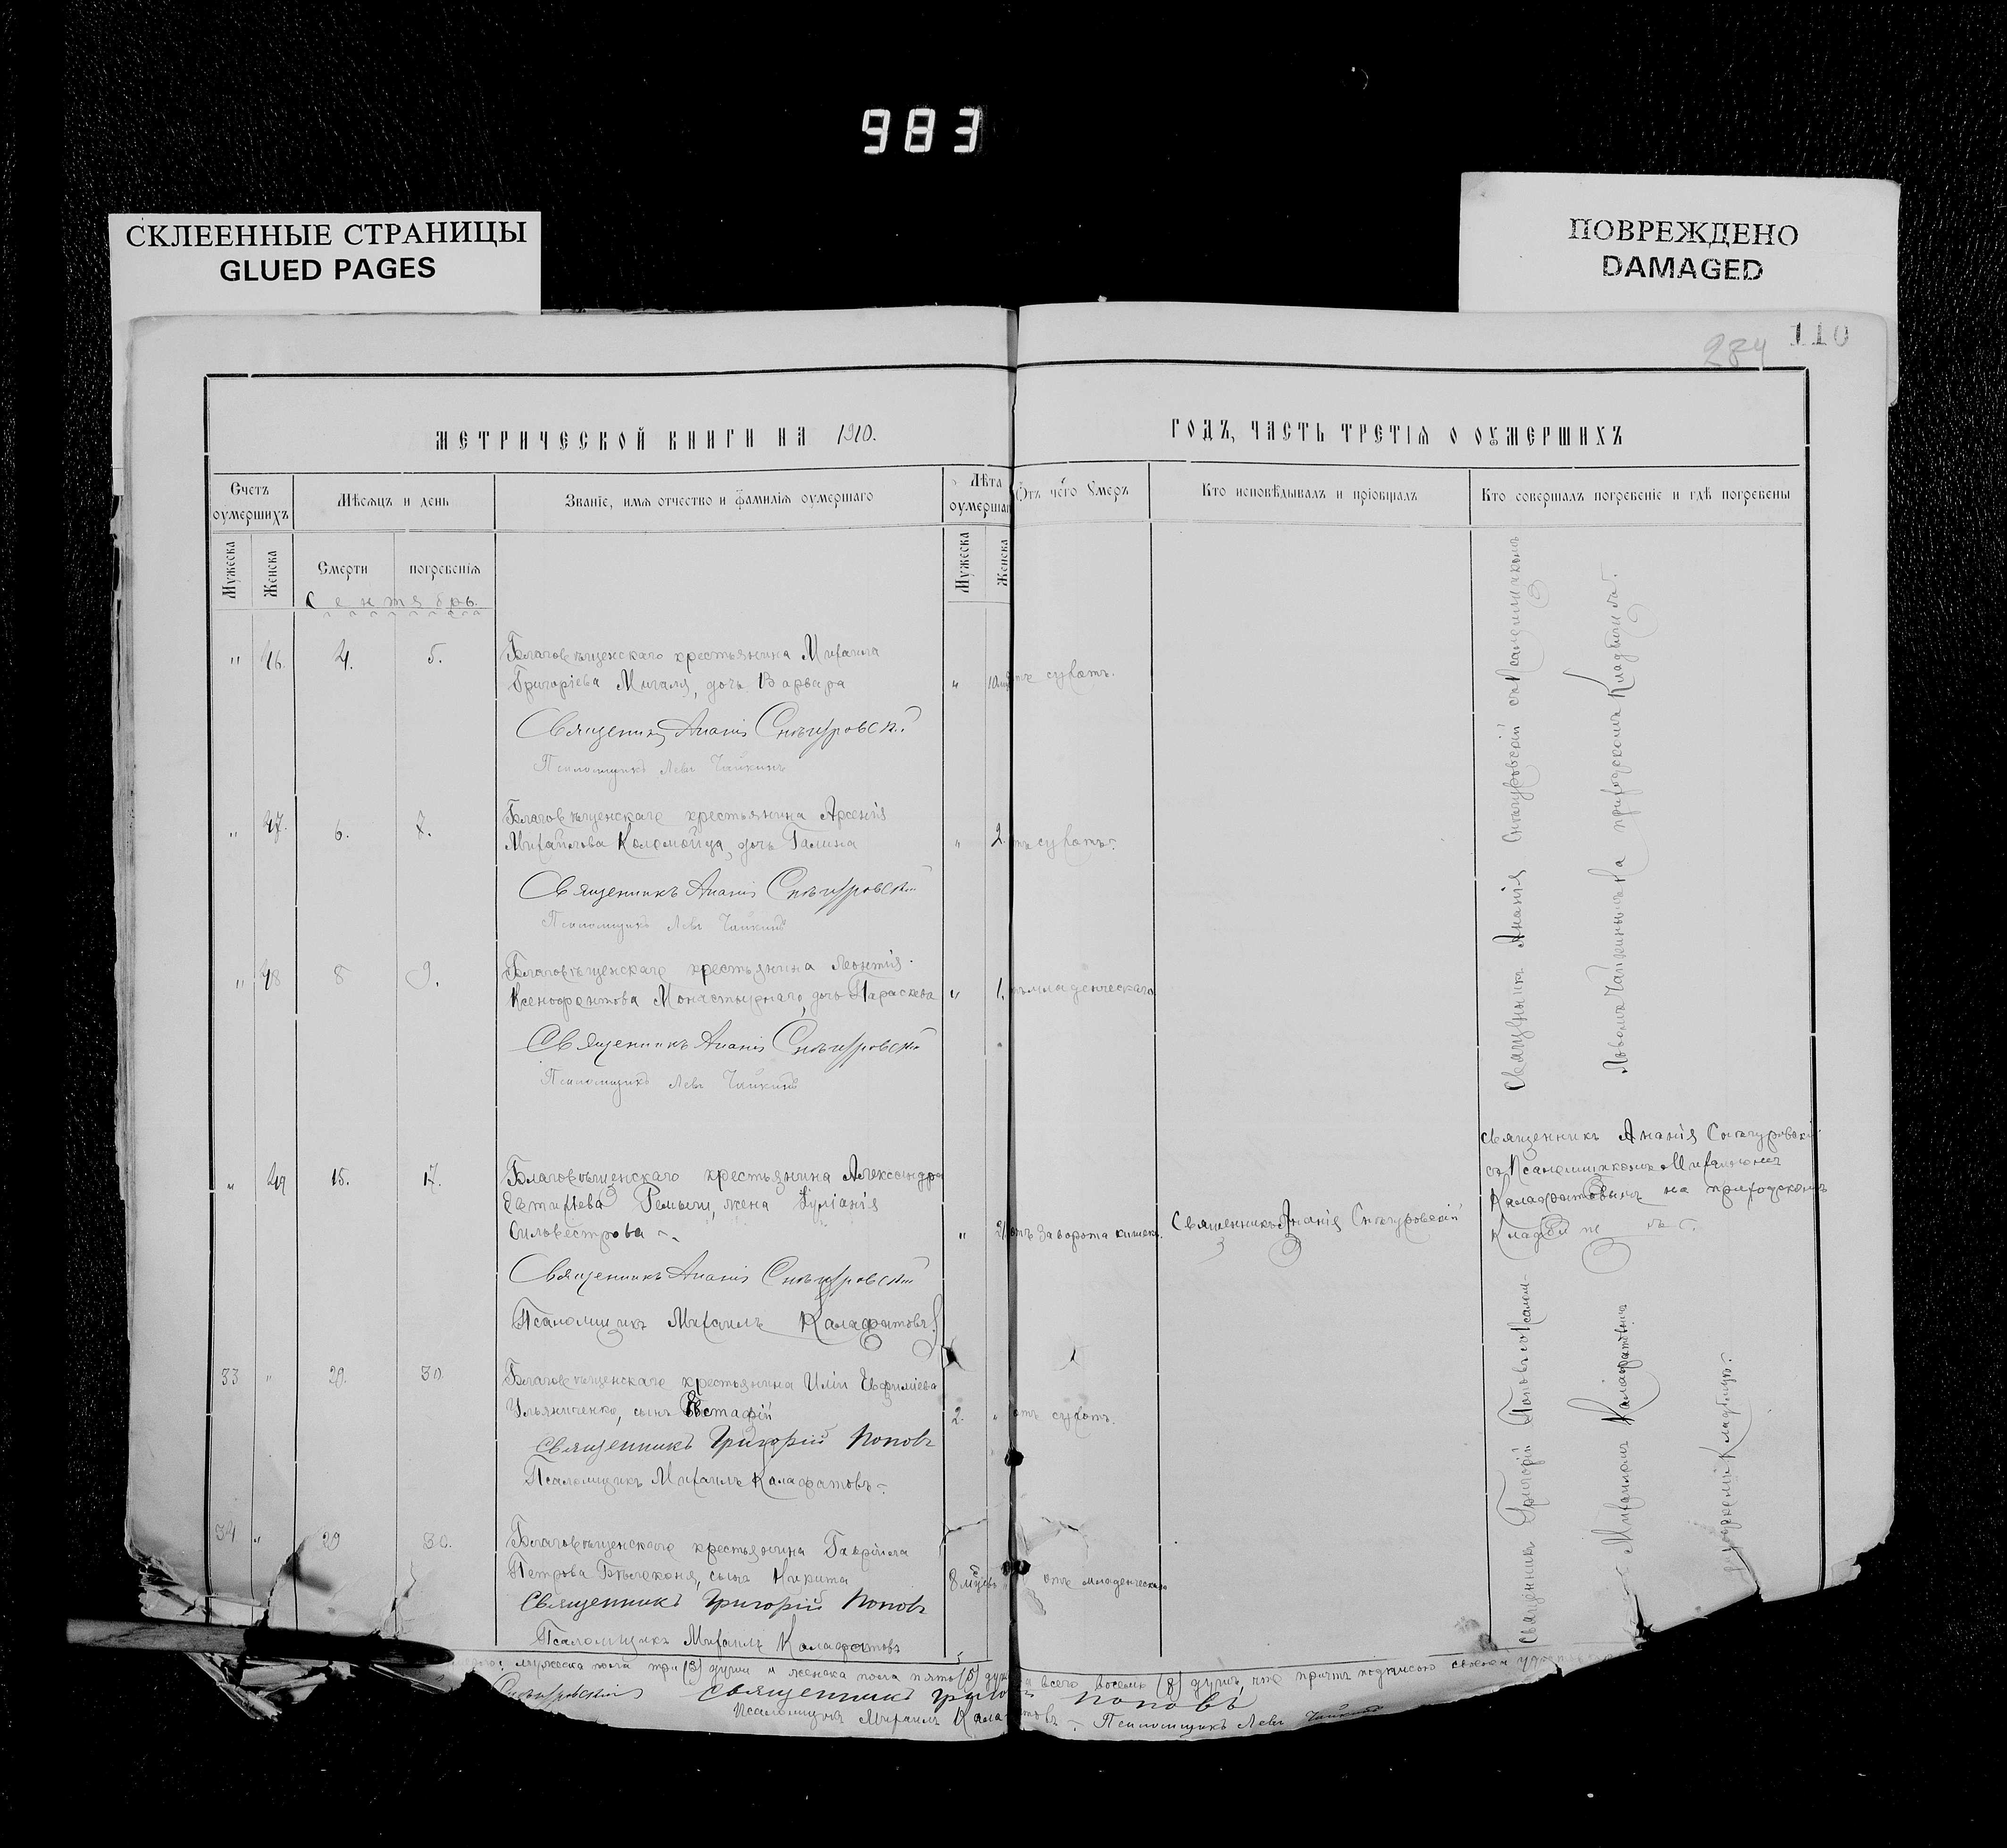 983
СКЛЕЕННЫЕ СТРАНИЦЫ
GLUED PAGES
ПОВРЕЖДЕНО
DAMAGED
284 110
МЕТРИЧЕСКОЙ КНИГИ НА 1910.
ГОДЪ, ЧАСТЬ ТРЕТІЯ О ОУМЕРШИХЪ
Счетъ оумершихъ
Мѣсяцъ и день
Званіе, имя отчество и фамилія оумершаго
Лѣта
оумершаг
Отъ чего Умеръ
Кто исповѣдывалъ и пріобщалъ
Кто совершалъ погребеніе и гдѣ погребены
Мужеска
Женска
Смерти
погребенія
Мужеска
Женска
Сентябрь.
" 46. 4. 5.
Благовѣщенскаго крестьянина Михаила
Григоріева Мигаля, дочь Варвара
" сухотъ.
Священникъ Ананія Снѣгуровскій
Псаломщикъ Левъ Чайкинъ
" 47. 6. 7.
Благовѣщенскаго крестьянина Арсенія
Михайлова Коломойца, дочь Галина
" 2. сухотъ.
Священникъ Ананія Снѣгуровскій
Псаломщикъ Левъ Чайкинъ
" 48 8 9.
Благовѣщенскаго крестьянина Леонтія
Ксенофонтова Монастырнаго, дочь Параскева
" 1. младенческаго
Священникъ Ананія Снѣгуровскій
Псаломщикъ Левъ Чайкинъ
Священникъ Ананія Снѣгуровскій съ Псаломщикомъ
Львомъ Чайкинымъ на приходскомъ Кладбищѣ.
" 49 15. 17.
Благовѣщенскаго крестьянина Александра
Евтихіева жена Іуліанія
Силовестрова
" отъ заворота кишекъ.
Священникъ Ананія Снѣгуровскій
Священникъ Ананія Снѣгуровскій
съ Псаломщикомъ Михаиломъ
Калафатовымъ на приходскомъ
Священникъ Ананія Снѣгуровскій
Псаломщикъ Михаилъ Калафатовъ
33 " 29. 30.
Благовѣщенскаго крестьянина Иліи Евфиміева
Ульяниченко, сынъ Евстафій
2. " отъ сухотъ.
Священникъ Григорій Поповъ
Псаломщикъ Михаилъ Калафатовъ
34 " 29 30.
Благовѣщенскаго крестьянина Гавріила
Петрова Бѣлоконя, сынъ Никита
8 отъ младенческаго
Священникъ Григорій Поповъ
Псаломщикъ Михаилъ Калафатовъ
Священникъ Григорій Поповъ съ Псалом-
Михаиломъ Калафатовымъ
Кладбищѣ.
мужеска пола три (3) души и женска пола пять (5) душ всего восемь (8) душъ, что причтъ подписью своею
Снѣгуровскій Священникъ Григорій Поповъ
Псаломщикъ Михаилъ Калафатовъ Псаломщикъ Левъ Чайкинъ